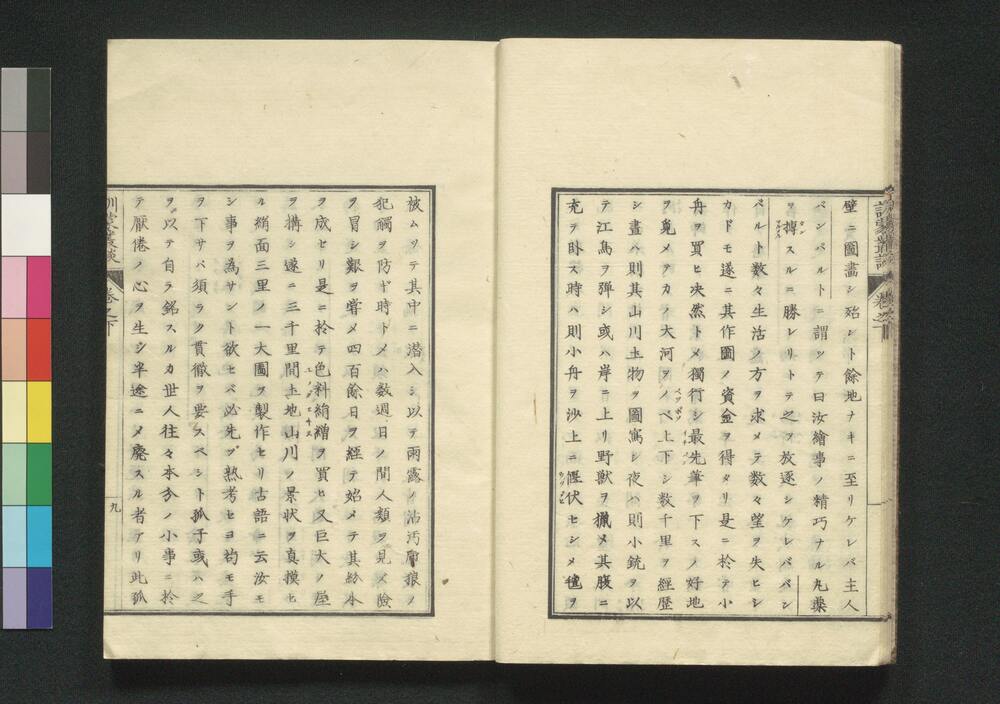 壁ニ圖畫シ殆ント餘地ナキニ至リケレバ主人
バンバルトニ謂ツテ曰汝繪事ノ精巧ナル丸藥
ヲ摶スルニ勝レリトテ之ヲ放逐シケレババン
バルト数々生活ノ方ヲ求メテ数々望ヲ失ヒシ
カドモ遂ニ其作圖ノ資金ヲ得タリ是ニ於テ小
舟ヲ買ヒ决然トメ獨行シ最先筆ヲ下スノ好地
ヲ覓メテカノ大河ヲノベ上下シ数千里ヲ經歴
シ畫ハ則其山川土物ヲ圖寫シ夜ハ則小銃ヲ以
テ江鳥ヲ彈シ或ハ岸ニ上リ野獣ヲ獵メ其腹ニ
充テ卧ス時ハ則小舟ヲ沙上ニ偃伏セシメ氊ヲ
被ムツテ其中ニ潜入シ以テ雨露ノ沾汚狼ノ
犯觸ヲ防ギ時トメハ数週日ノ間人類ヲ見メ險
ヲ冒シ艱ヲ嘗メ四百餘日ヲ經テ始メテ其紛本
ヲ成セリ是ニ於テ色料絹繒ヲ買ヒ又巨大ノ屋
ヲ搆シ遂ニ三千里間土地山川ノ景状ヲ真摸セ
ル絹面三里ノ一大圖ヲ製作セリ古語ニ云汝モ
シ事ヲ為サント欲セバ必先ヅ熟考セヨ苟モ手
ヲ下サバ須ラク貫徹ヲ要スベシト孤子或ハ之
ヲ以テ自ラ銘スルカ世人往々本分ノ小事ニ於
テ厭倦ノ心ヲ生シ半途ニメ廢スル者アリ此孤
訓蒙叢談 卷之下 九